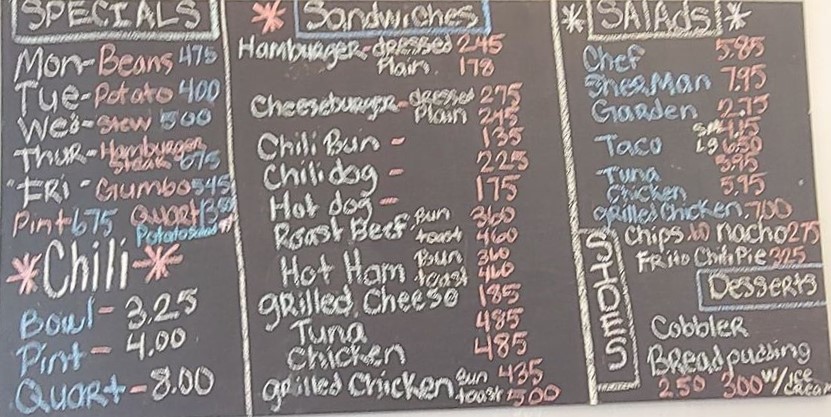 SPECIALS
Mon-Beans 475
Tue-Potato 400
Wed-Stew 500
Thur-Hamburger Steak 675
"FRi-Gumbo 545
Pint 675 Quart
Potato
*Chili*
Bowl-3.25
Pint-4.00
Quart-8.00
* Sandwiches
Hamburger-dressed 245
Plain. 178
Cheeseburger-dressed 275
Plain 245
Chili Bun - 135
Chilidog - 225
Hot dog - 175
Roast Beef Bun 360
toast 460
Hot Ham Bun 360
toast 460
gRilled Cheese 185
Tuna 485
chicken 485
gRilled Chicken Bun 435
toast 500
*SALAds*
Chef 5.85
SherMan 7.95
GaRden 2.75
Taco Sm 4.15
Lg 650
Tuna 5.95
Chicken 5.95
gRilled Chicken 7.00
SIDES
Chips .60 nacho 275
FRito Chili Pie 325
Desserts
CobbleR
BReadpudding
2.50 300 w/Ice CReam